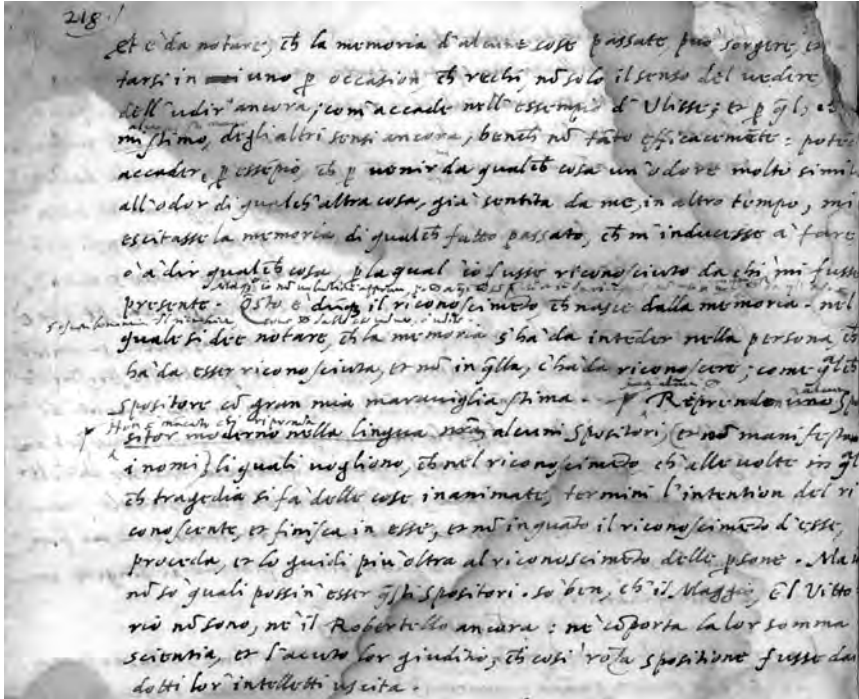 218.
Et è da notare, ch̃ la memoria d'alcune cose passate, può sorgere, et
farsi in uno p occasion ch̃ rechi, nõ solo il senso del uedere
dell'udir'ancora, com'accade nell'essempio d'Ulisse; et p q̃l, ch̃
stimo, degli altri sensi ancora, bench̃ nõ tãto efficacemẽte: potẽ
accader, p essẽpio, ch̃ p uenir da qualch̃ cosa un'odore molto simil
all'odor di qualch'altra cosa, già sentita da me, in altro tempo, mi
escitasse la memoria di qualch̃ fatto passato, ch̃ m'inducesse à fare
ò à dir qualch̃ cosa, p la qual io fusse riconosciuto da chi mi fusse
presente. Q̃sto è dunq̃ il riconoscimẽto, ch̃ nasce dalla memoria. nel
quale si dee notare, ch̃ la memoria s'hà da intẽder nella persona, ch̃
hà da esser riconosciuta, et nõ in q̃lla, c'hà da riconoscere; come q̃lch̃
spositore cõ gran mia marauiglia stima. Reprende uno spo
Non è mãcato chi
sitor moderno nella lingua nr̃a alcuni spositori (et nõ manifesta
i nomi) li quali uogliono, ch̃ nel riconoscimẽto ch'alle uolte in q̃l
ch̃ tragedia si fà delle cose inanimate, termini l'intention del ri
conoscente, et finisca in esse, et nõ in quãto il riconoscimẽto d'esse,
proceda, et lo guidi più oltra al riconoscimẽto delle psone. Ma
nõ sò quali possin'esser q̃sti spositori. sò ben, ch'il Maggio, e'l Vitto
rio nõ sono, nè il Robertello ancora: nè cõporta la lor somma
scientia, et l'acuto lor giuditio, ch̃ così roza spositione fusse dai
dotti lor'intelletti uscita.